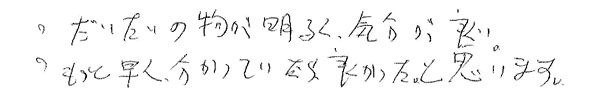 ・だいたいの物が明るく、気分が良い。
・もっと早く、分かっていたら良かった。と思います。